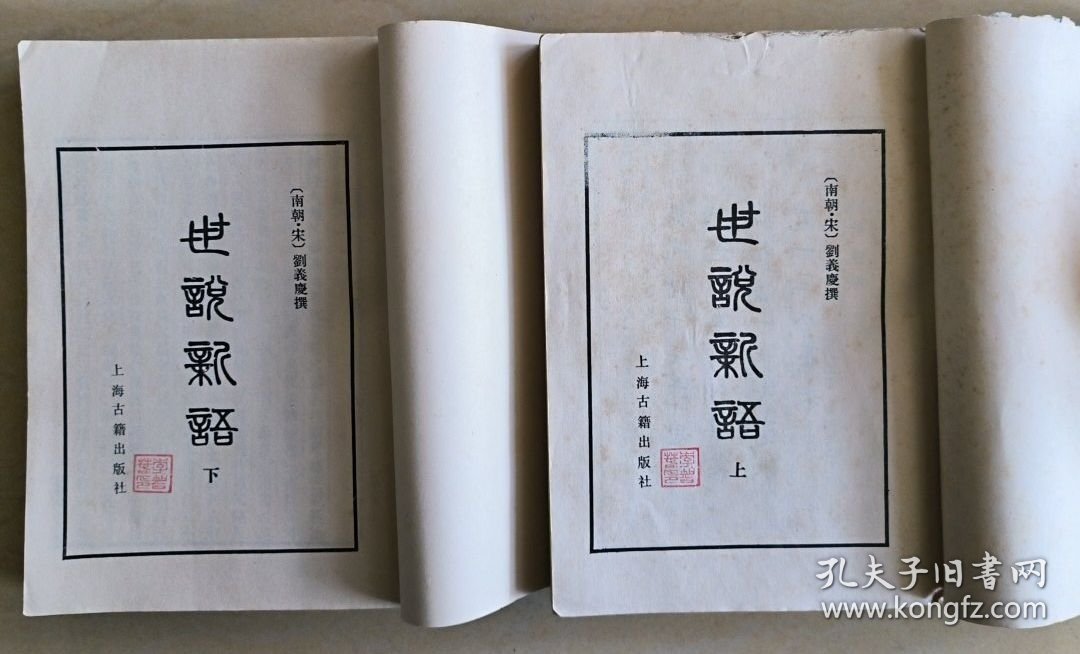 〔南朝·宋〕劉義慶撰
世說新語
下
上海古籍出版社
〔南朝·宋〕劉義慶撰
世說新語
上
上海古籍出版社
孔夫子旧書网
www.kongfz.com